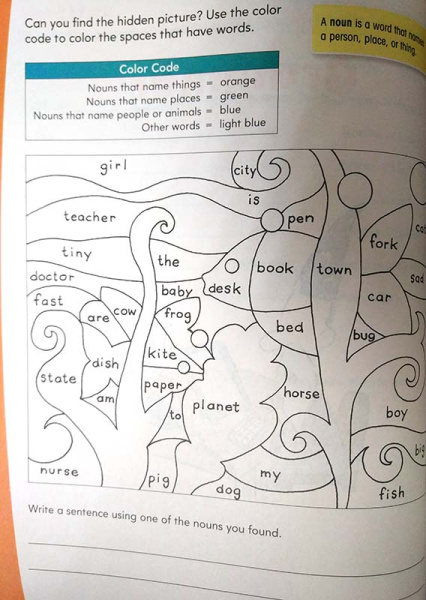 Can you find the hidden picture? Use the color
code to color the spaces that have words.
A noun is a word that names
a person, place, or thing.
Color Code
Nouns that name things = orange
Nouns that name places = green
Nouns that name people or animals = blue
Other words = light blue
girl
city
is
teacher
pen
fork
tiny
the
book
town
doctor
baby
desk
sad
fast
are
cow
frog
car
bed
bug
dish
kite
state
paper
am
to
planet
horse
boy
big
nurse
pig
my
dog
fish
Write a sentence using one of the nouns you found.